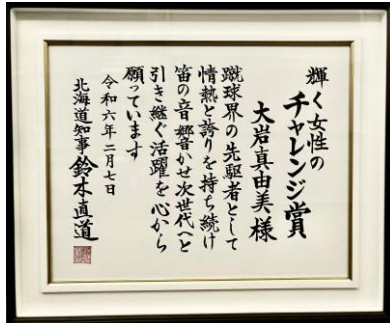 輝く女性の
チャレンジ賞
大岩真由美様
蹴球界の先駆者として
情熱と誇りを持ち続け
笛の音響かせ次世代へと
引き継ぐ活躍を心から
願っています
令和六年二月七日
北海道知事 鈴木直道